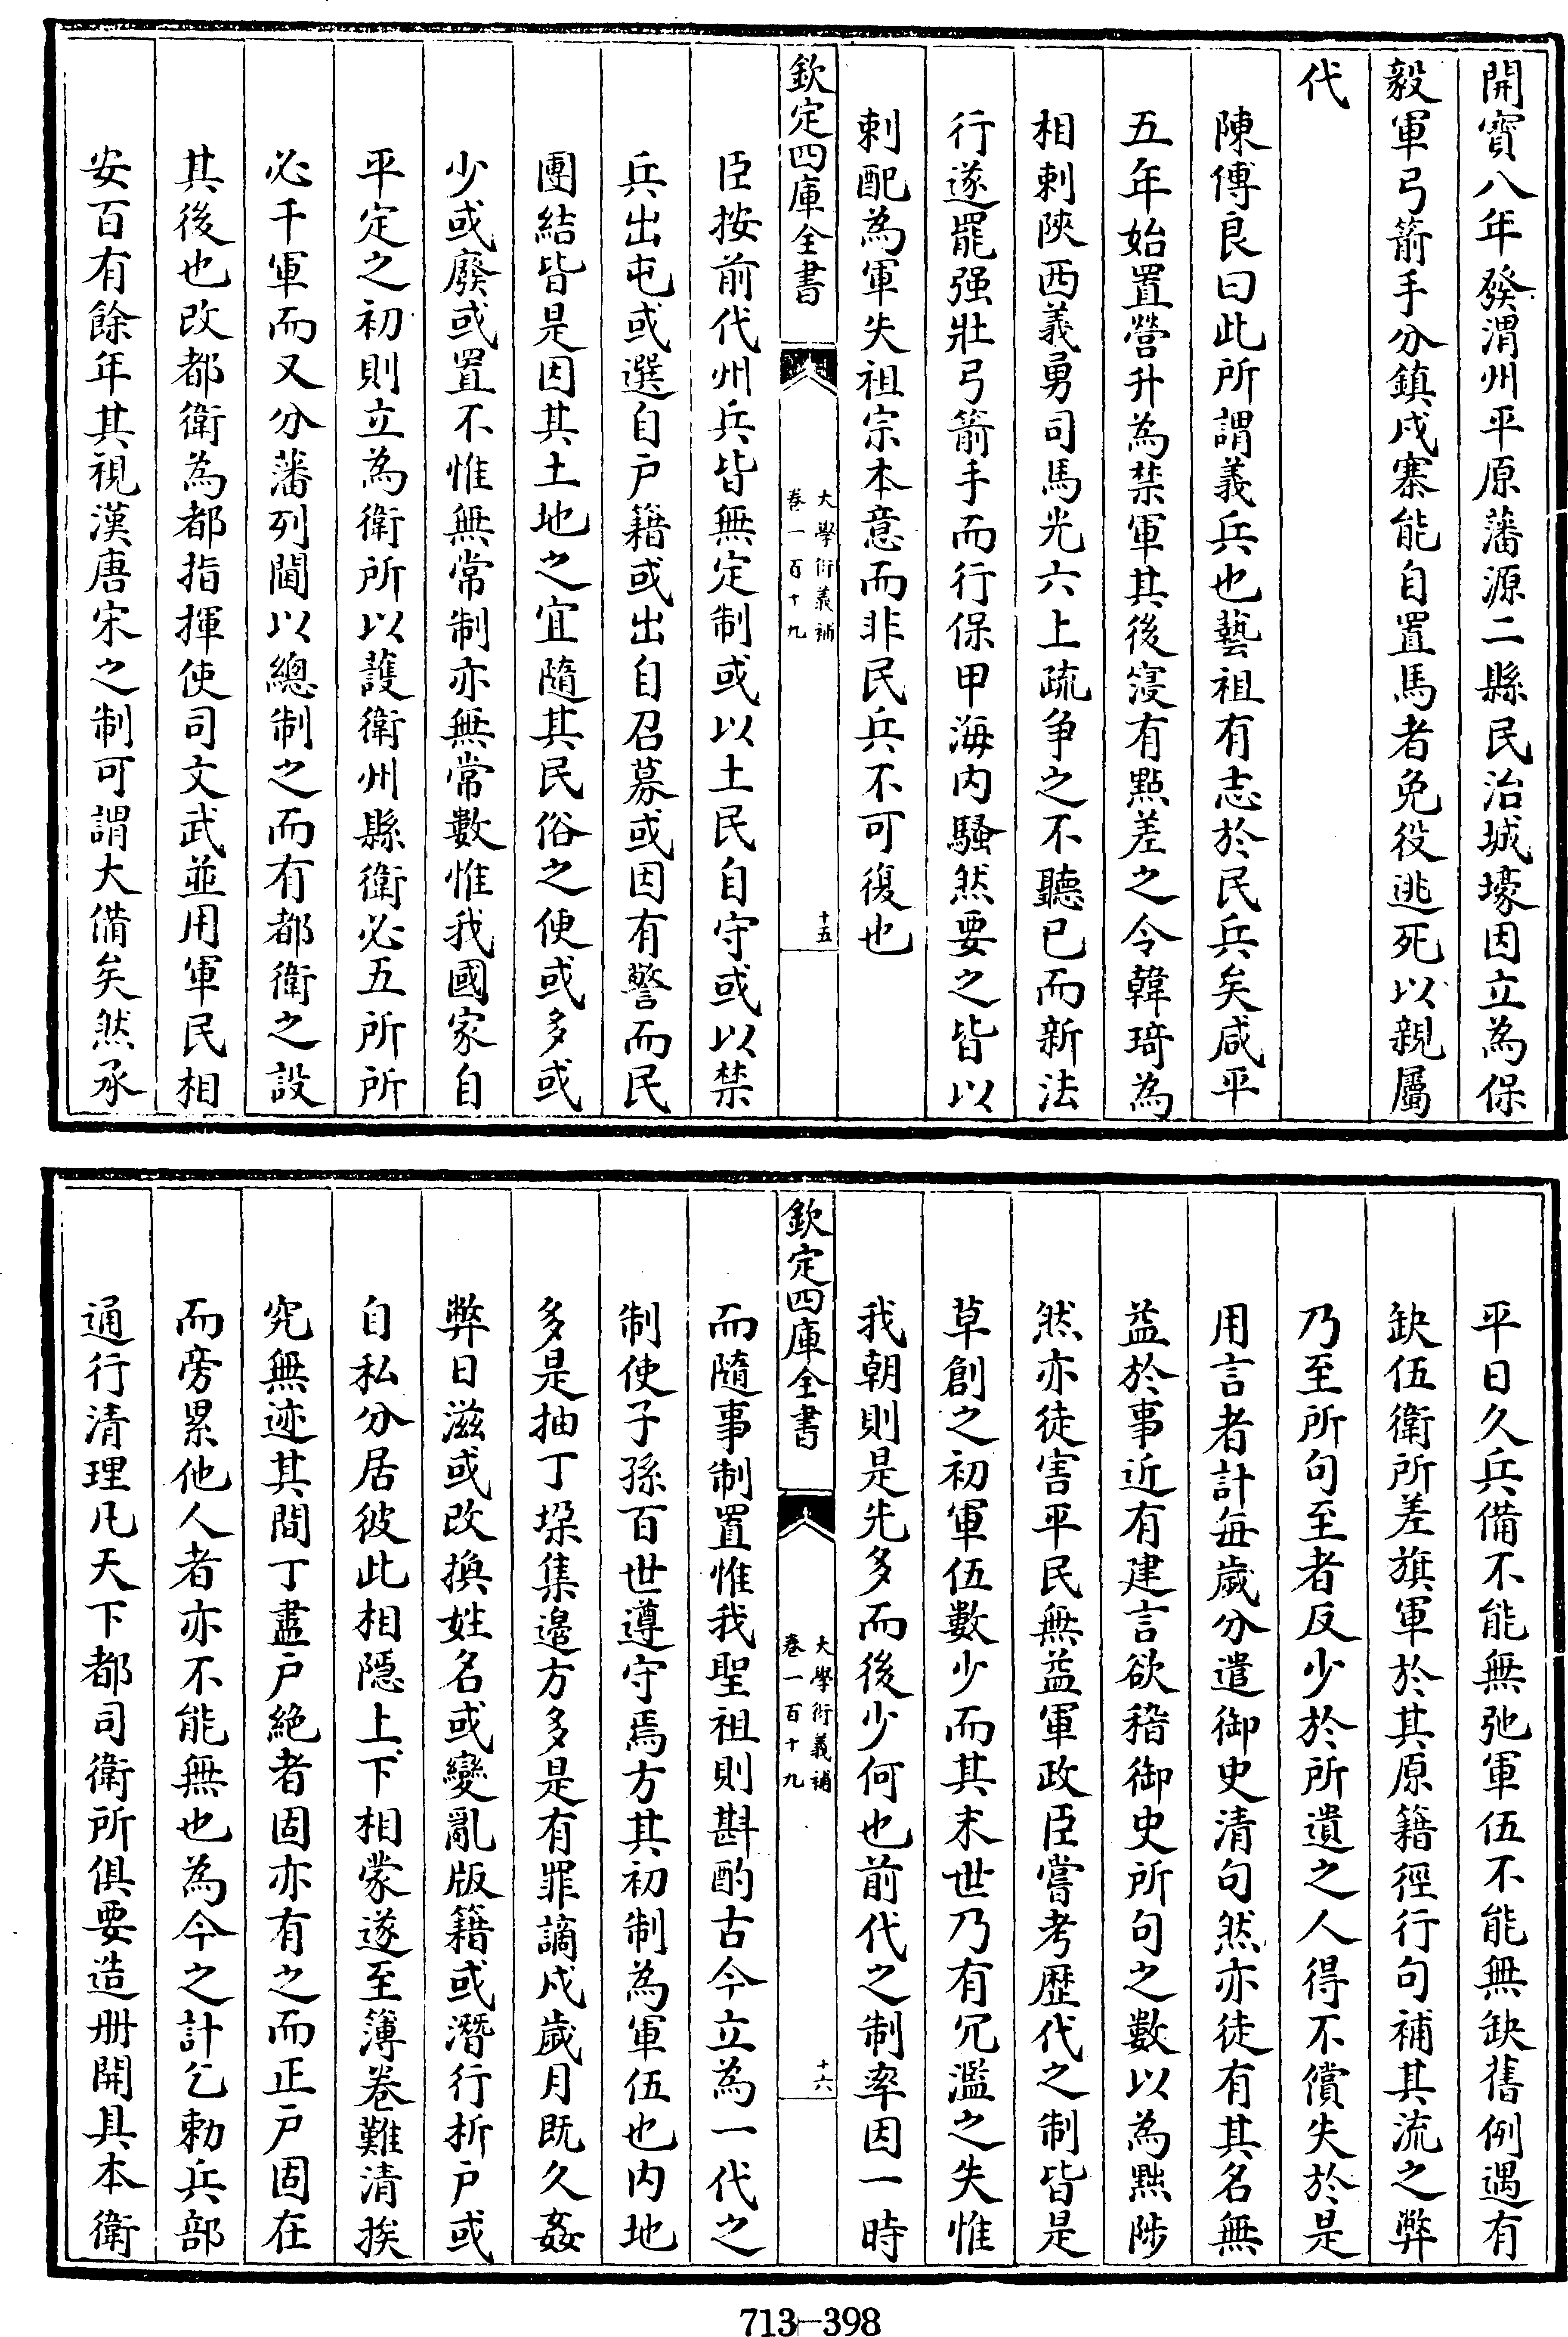 開寶八年發渭州平原藩源二縣民治城壕因立為保
毅軍弓箭手分鎮戍寨能自置馬者免役逃死以親屬
代
陳傅良曰此所謂義兵也藝祖有志於民兵矣咸平
五年始置營升為禁軍其後寖有點差之令韓琦為
相刺陜西義勇司馬光六上疏争之不聽已而新法
行遂罷强壯弓箭手而行保甲海内騷然要之皆以
刺配為軍失祖宗本意而非民兵不可復也
欽定四庫全書
大學衍義補
卷一百十九
十五
臣按前代州兵皆無定制或以土民自守或以禁
兵出屯或選自户籍或出自召募或因有警而民
團結皆是因其土地之宜隨其民俗之便或多或
少或廢或置不惟無常制亦無常數惟我國家自
平定之初則立為衛所以護衛州縣衛必五所所
必千軍而又分藩列閫以總制之而有都衛之設
其後也改都衛為都指揮使司文武並用軍民相
安百有餘年其視漢唐宋之制可謂大備矣然承
平日久兵備不能無弛軍伍不能無缺舊例遇有
缺伍衛所差旗軍於其原籍徑行句補其流之弊
乃至所句至者反少於所遺之人得不償失於是
用言者計每歲分遣御史清句然亦徒有其名無
益於事近有建言欲稽御史所句之數以為點陟
然亦徒害平民無益軍政臣嘗考歴代之制皆是
草創之初軍伍數少而其末世乃有冗濫之失惟
我朝則是先多而後少何也前代之制率因一時
欽定四庫全書
大學衍義補
卷一百十九
十六
而隨事制置惟我聖祖則斟酌古今立為一代之
制使子孫百世遵守焉方其初制為軍伍也内地
多是抽丁垛集邉方多是有罪謫戍歲月既久姦
弊日滋或改換姓名或變亂版籍或潛行析户或
自私分居彼此相隱上下相蒙遂至簿卷難清挨
究無迹其間丁盡户絶者固亦有之而正户固在
而旁累他人者亦不能無也為今之計乞勅兵部
通行清理凡天下都司衛所俱要造冊開具本衛
713-398